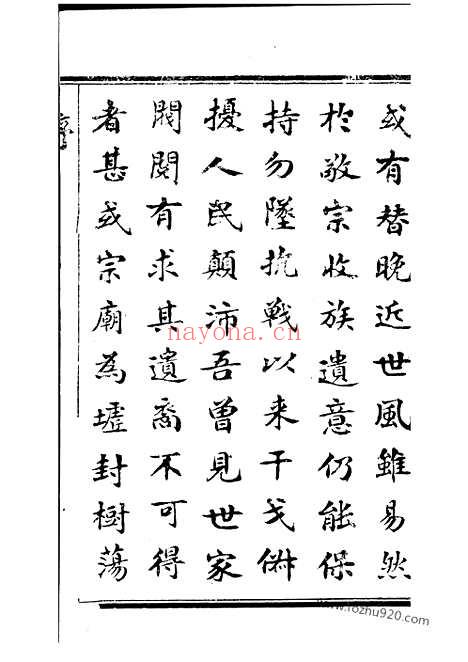 或有替晚近世風雖易然
於敬宗收族遺意仍能保
持勿墜抗戰以来干戈俶
擾人民顛沛吾曾見世家
閥閱有求其遺裔不可得
者甚或宗廟為墟封樹蕩
nayona.cn
www.fozhu920.com